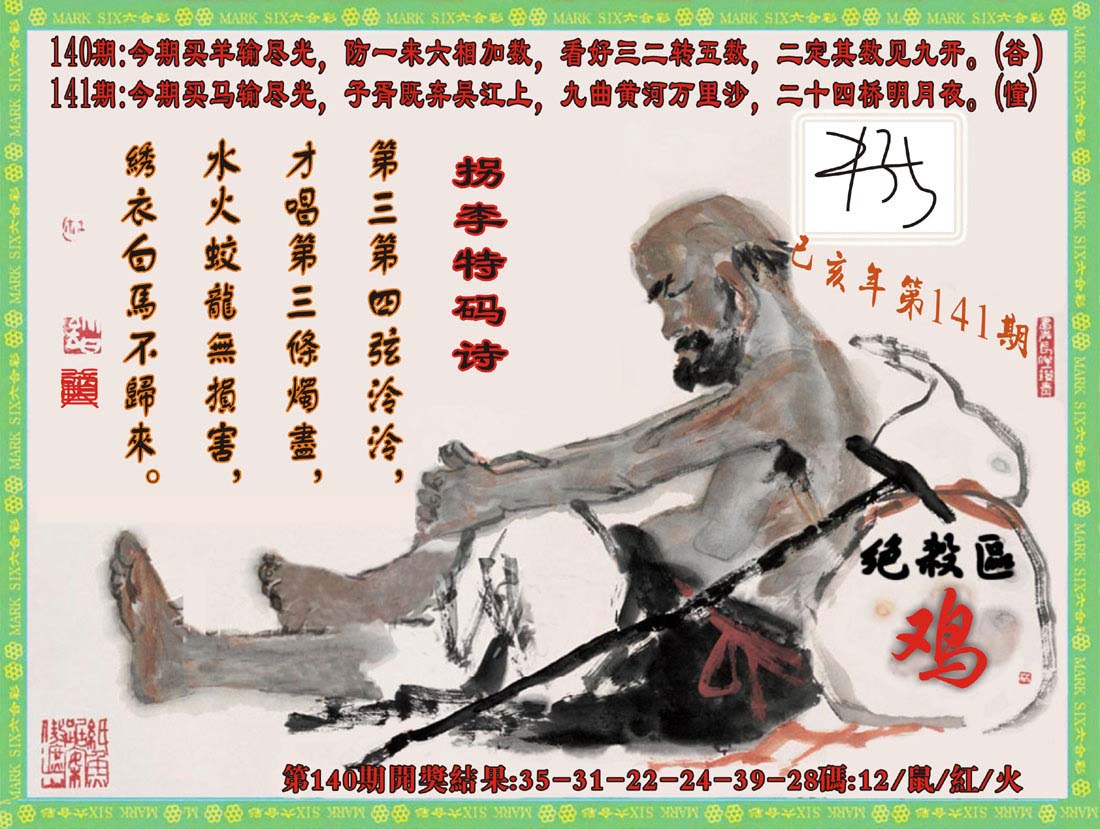 MARK SIX六合彩 MARK SIX六合彩 MARK SIX六合彩 MARK SIX六合彩 MARK SIX六合彩 MARK SIX六合彩
140期:今期买羊输尽光，防一来六相加数，看好三二转五数，二定其数见九开。(谷)
141期:今期买马输尽光，子胥既弃吴江上，九曲黄河万里沙，二十四桥明月夜。(憧)
己亥年第141期
拐李特码诗
第三第四弦泠泠，
才唱第三條燭盡，
水火蛟龍無損害，
綉衣白馬不歸來。
绝殺區
鸡
第140期開獎結果:35-31-22-24-39-28碼:12/鼠/紅/火